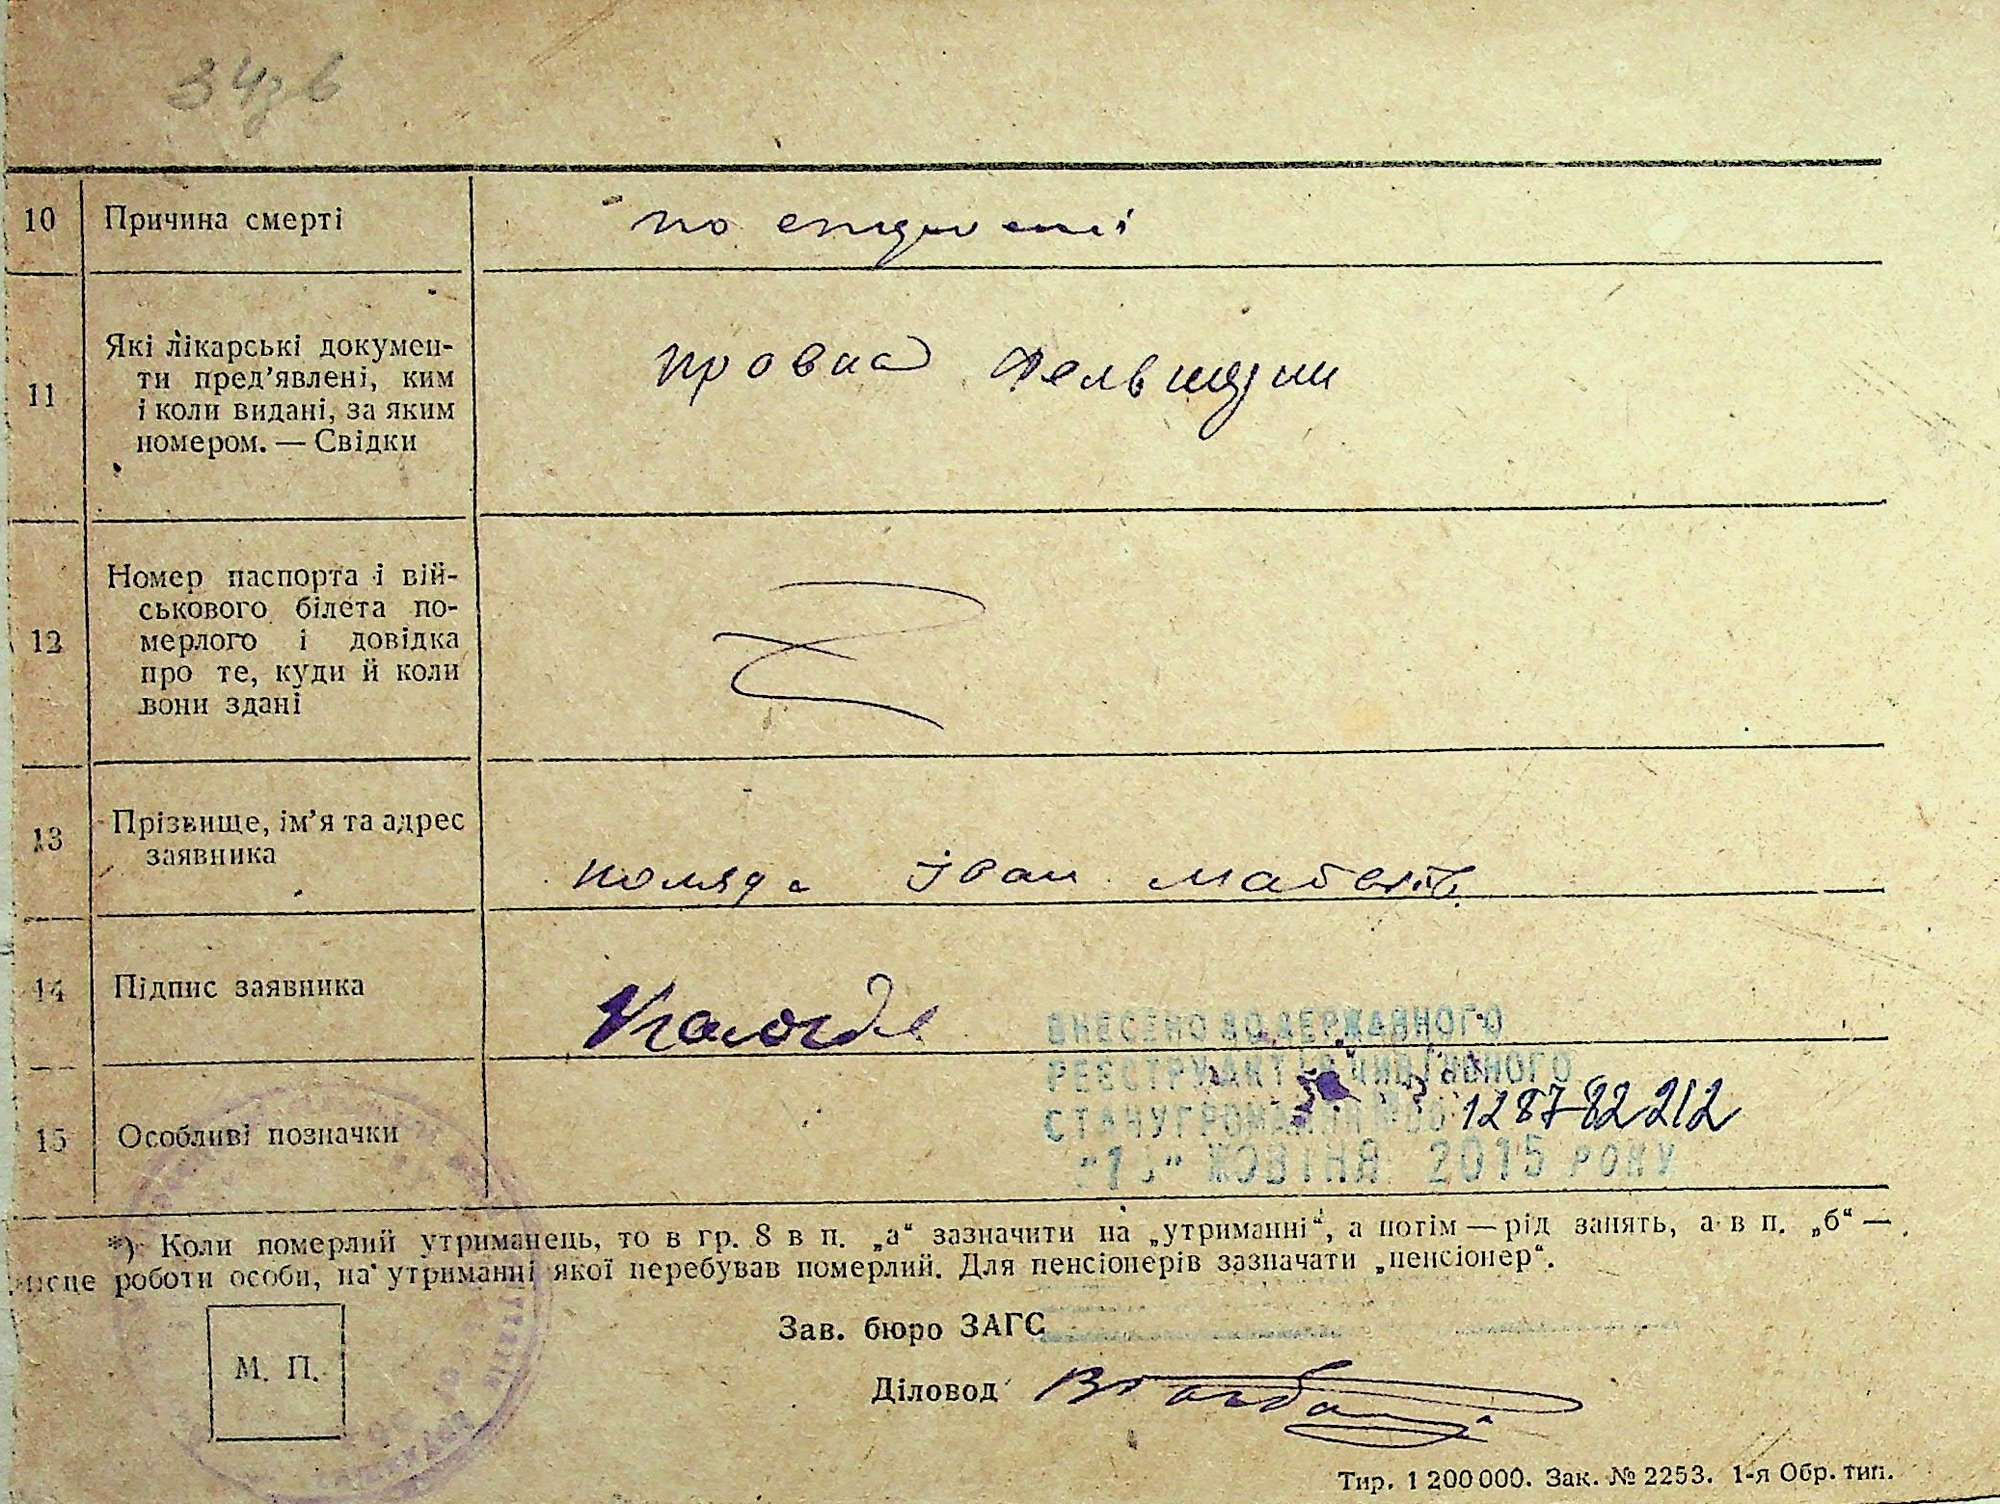 10 Причина смерті
по епідемії
Які лікарські докумен-
ти пред'явлені, ким
11 і коли видані, за яким
номером. — Свідки
Номер паспорта і вій-
ськового білета по-
12 мерлого і довідка
про те, куди й коли
вони здані
13 Прізвище, ім'я та адрес
заявника
Іван
14 Підпис заявника
ВНЕСЕНО ДО ДЕРЖАВНОГО
РЕЄСТРУ АКТІВ ЦИВІЛЬНОГО
СТАНУ ГРОМАДЯН
15 Особливі позначки
ЖОВТНЯ 2015 РОКУ
*) Коли померлий утриманець, то в гр. 8 в п. „а“ зазначити на „утриманні“, а потім — рід занять, а в п. „б“ —
місце роботи особи, на утриманні якої перебував померлий. Для пенсіонерів зазначати „пенсіонер“.
Зав. бюро ЗАГС
М. П.
Діловод
Тир. 1 200 000. Зак. № 2253. 1-я Обр. тип.